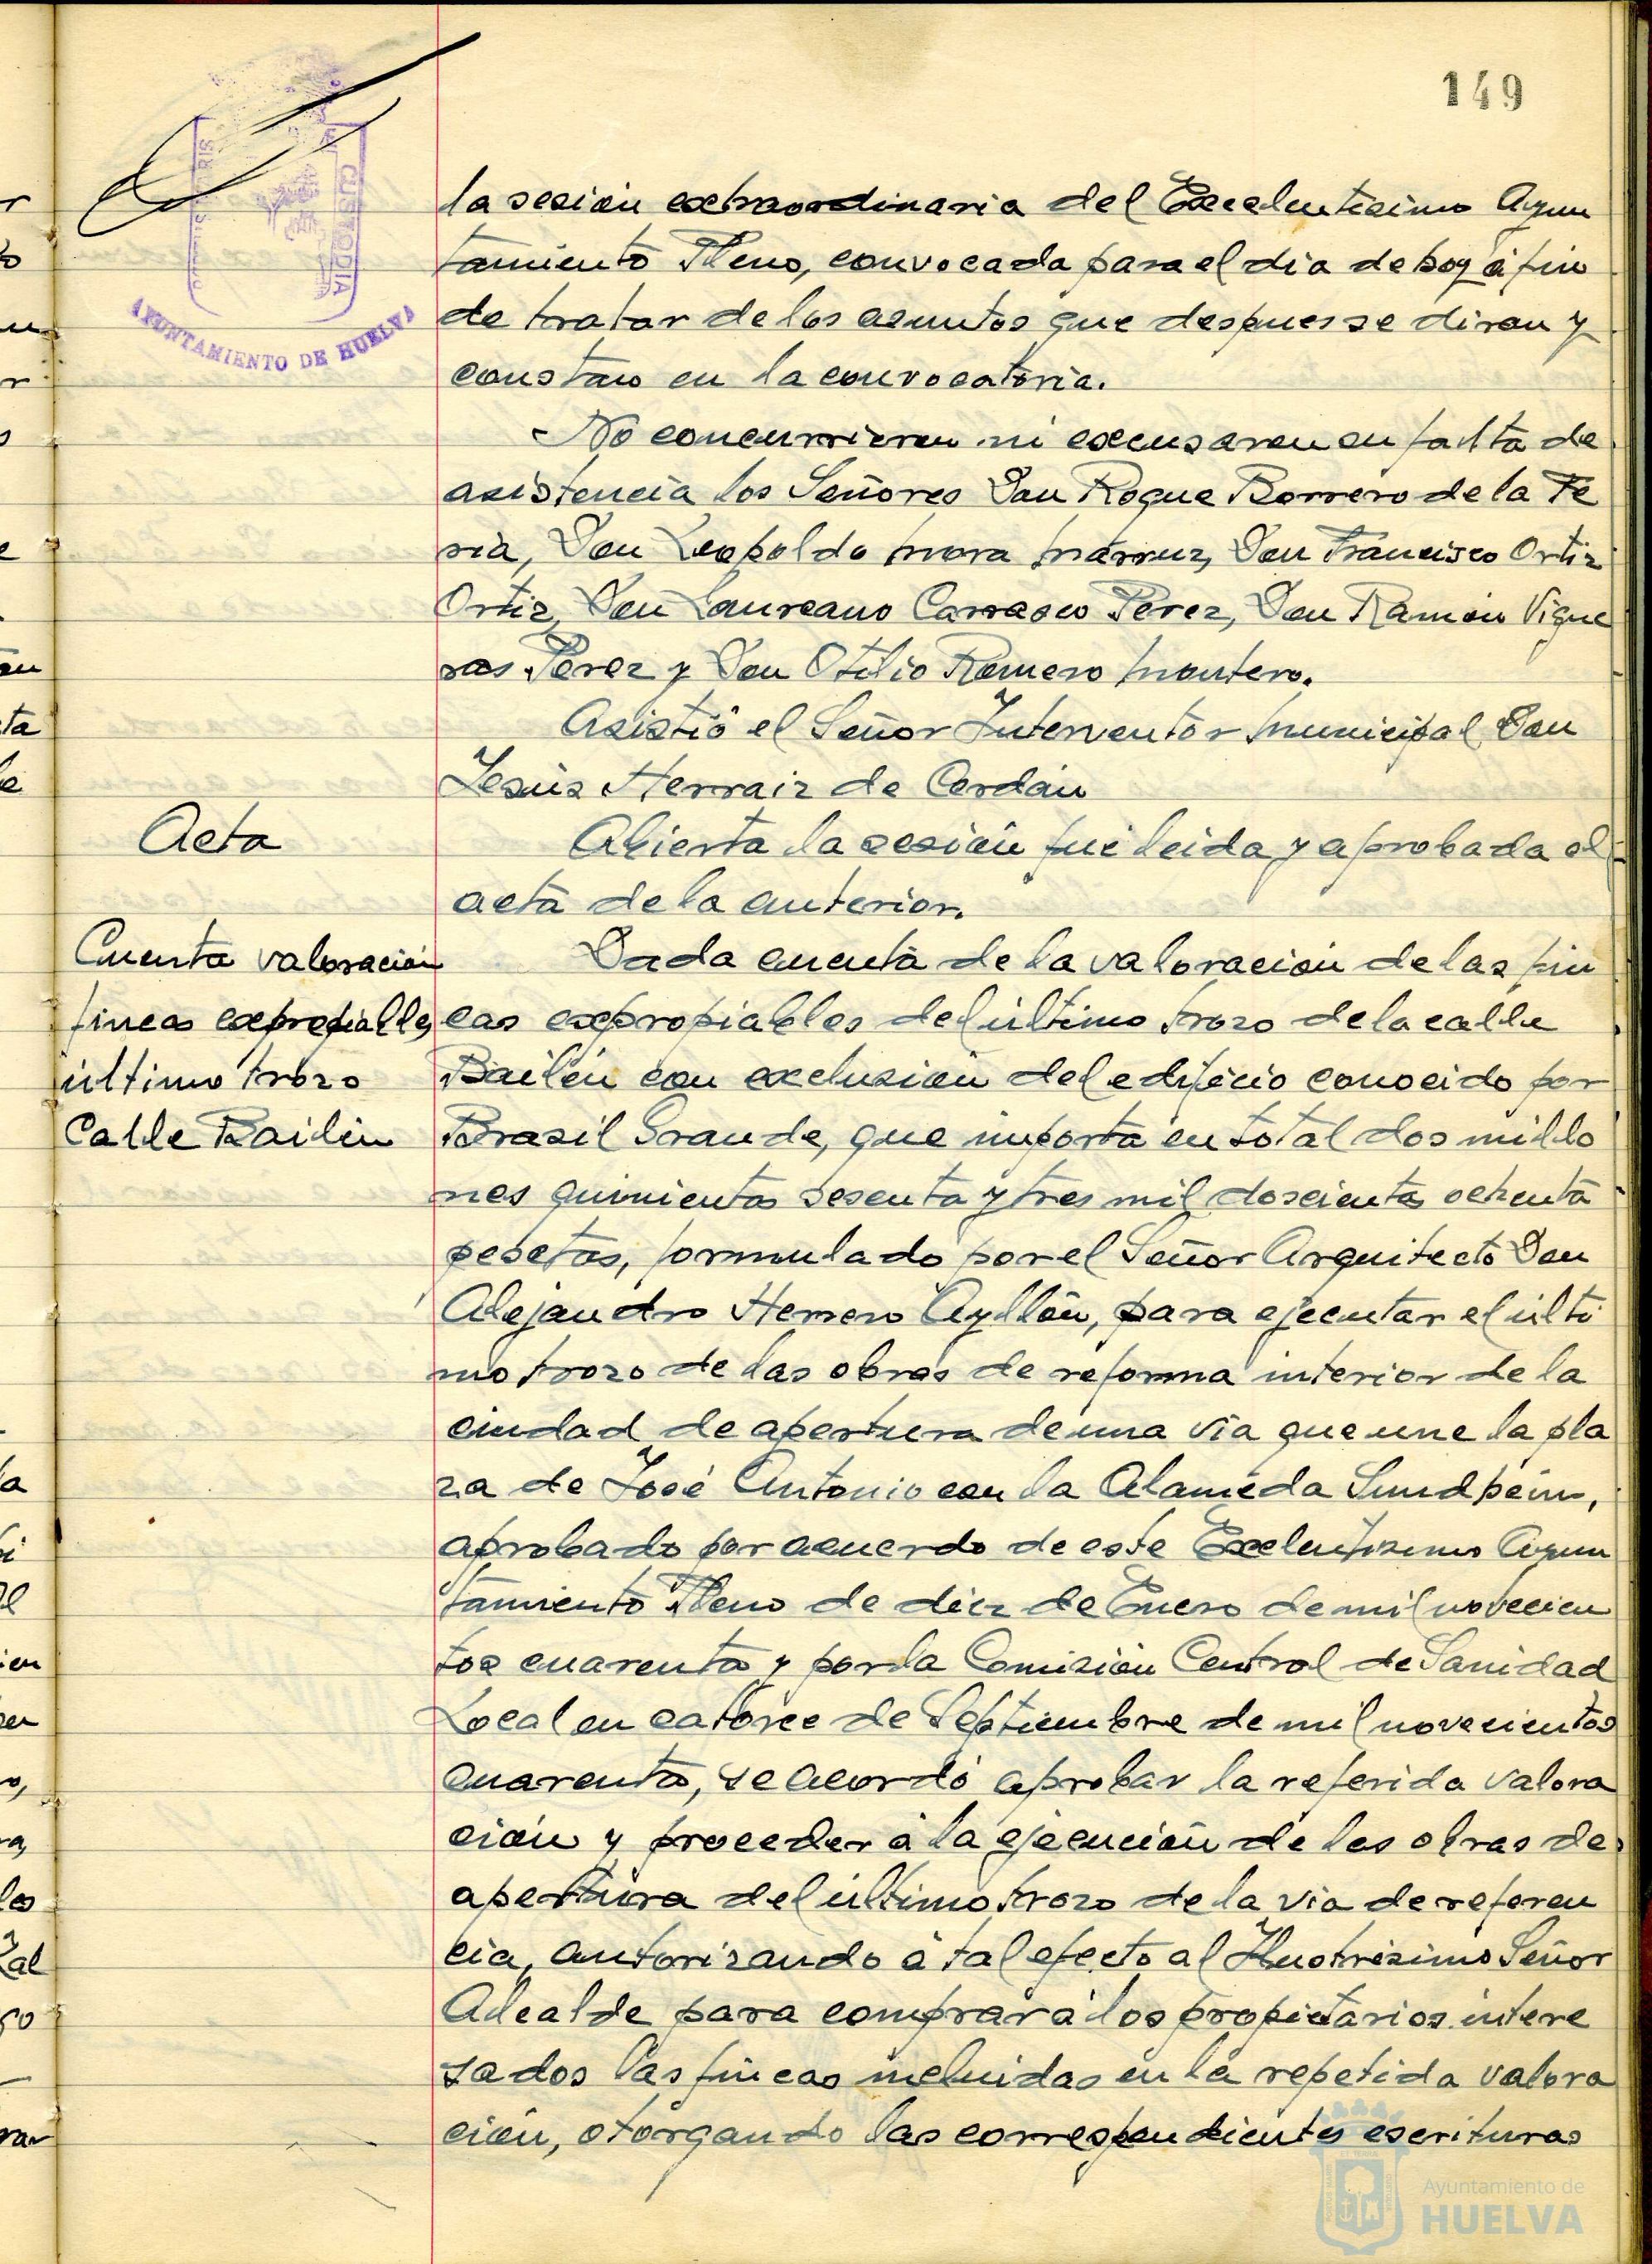 149
la sesión extraordinaria del Excelentísimo Ayun
tamiento Pleno, convocada para el día de hoy á fin
de tratar de los asuntos que despues se diran y
constan en la convocatoria.
No concurrieron ni excusaron su falta de
asistencia los Señores Don Roque Borrero de la Fe
ria, Don Leopoldo Mora Don Francisco Ortiz
Ortiz, Don Laureano Carrasco Pérez, Don Ramón Vigue
ras Pérez y Don Otilio Romero Montero.
Asistió el Señor Interventor Municipal Don
Jesús Herraiz de Cerdán
Acta
Abierta la sesión fué leida y aprobada el
acta de la anterior.
Cuenta valoración
fincas expropiables
último trozo
Calle Bailén
Dada cuenta de la valoración de las fin
cas expropiables del último trozo de la calle
Bailén con exclusión del edificio conocido por
Brasil Grande, que importa en total dos millo
nes quinientas sesenta y tres mil doscientas ochenta
pesetas, formulado por el Señor Arquitecto Don
Alejandro Herrero Ayllón, para ejecutar el últi
mo trozo de las obras de reforma interior de la
ciudad de apertura de una via que une la pla
za de José Antonio con la Alameda Sundheim,
aprobado por acuerdo de este Excelentísimo Ayun
tamiento Pleno de diez de Enero de mil novecien
tos cuarenta y por la Comisión Central de Sanidad
Local en catorce de Septiembre de mil novecientos
cuarenta, se acordó aprobar la referida valora
ción y proceder á la ejecución de las obras de
apertura del último trozo de la via de referen
cia, autorizando á tal efecto al Ilustrísimo Señor
Alcalde para comprar á los propietarios intere
sados las fincas incluidas en la repetida valora
ción, otorgando las correspondientes escrituras
AYUNTAMIENTO DE HUELVA
CUSTODIA
Ayuntamiento de
HUELVA